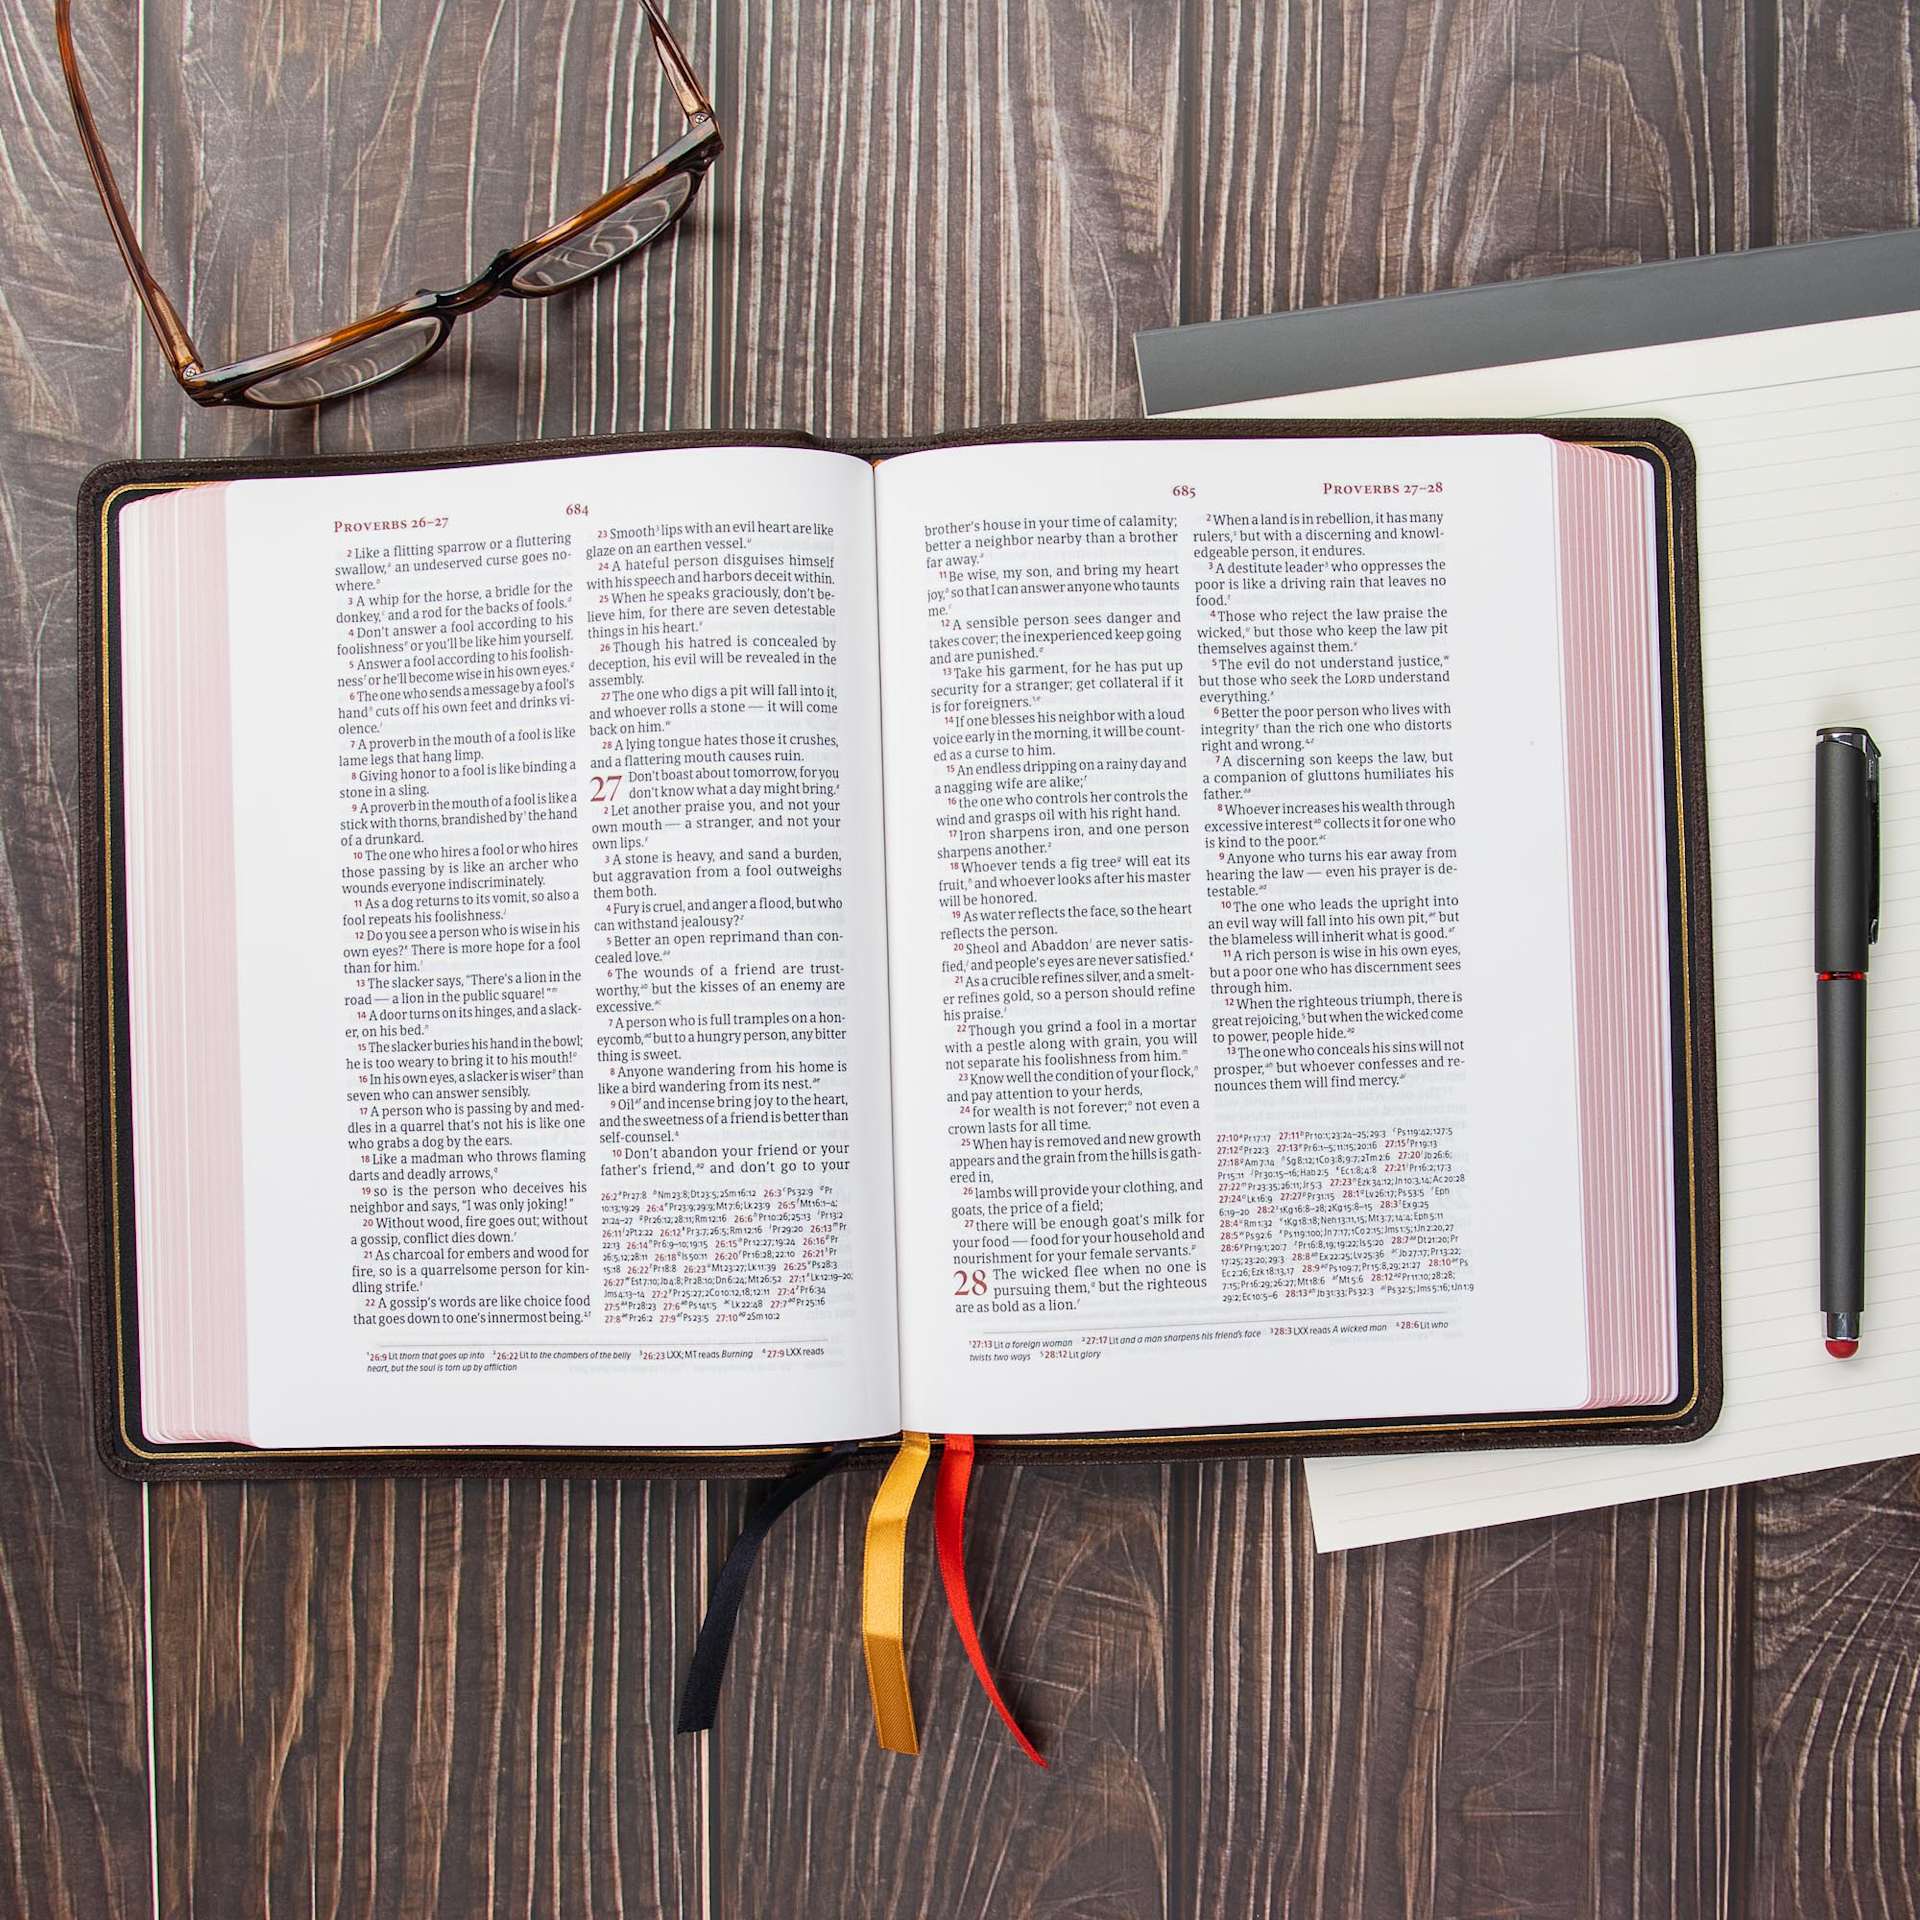 PROVERBS 26–27
684
2 Like a flitting sparrow or a fluttering
swallow,ᵃ an undeserved curse goes no-
where.ᵇ
3 A whip for the horse, a bridle for the
donkey,ᶜ and a rod for the backs of fools.ᵈ
4 Don't answer a fool according to his
foolishnessᵉ or you'll be like him yourself.
5 Answer a fool according to his foolish-
nessᶠ or he'll become wise in his own eyes.ᵍ
6 The one who sends a message by a fool's
handʰ cuts off his own feet and drinks vi-
olence.ⁱ
7 A proverb in the mouth of a fool is like
lame legs that hang limp.
8 Giving honor to a fool is like binding a
stone in a sling.
9 A proverb in the mouth of a fool is like a
stick with thorns, brandished by¹ the hand
of a drunkard.
10 The one who hires a fool or who hires
those passing by is like an archer who
wounds everyone indiscriminately.
11 As a dog returns to its vomit, so also a
fool repeats his foolishness.ʲ
12 Do you see a person who is wise in his
own eyes?ᵏ There is more hope for a fool
than for him.ˡ
13 The slacker says, “There's a lion in the
road — a lion in the public square!”ᵐ
14 A door turns on its hinges, and a slack-
er, on his bed.ⁿ
15 The slacker buries his hand in the bowl;
he is too weary to bring it to his mouth!ᵒ
16 In his own eyes, a slacker is wiserᵖ than
seven who can answer sensibly.
17 A person who is passing by and med-
dles in a quarrel that's not his is like one
who grabs a dog by the ears.
18 Like a madman who throws flaming
darts and deadly arrows,
19 so is the person who deceives his
neighbor and says, “I was only joking!”
20 Without wood, fire goes out; without
a gossip, conflict dies down.ʳ
21 As charcoal for embers and wood for
fire, so is a quarrelsome person for kin-
dling strife.ˢ
22 A gossip's words are like choice food
that goes down to one's innermost being.²,ᵗ
23 Smooth³ lips with an evil heart are like
glaze on an earthen vessel.ᵘ
24 A hateful person disguises himself
with his speech and harbors deceit within.
25 When he speaks graciously, don't be-
lieve him, for there are seven detestable
things in his heart.ᵛ
26 Though his hatred is concealed by
deception, his evil will be revealed in the
assembly.
27 The one who digs a pit will fall into it,
and whoever rolls a stone — it will come
back on him.ʷ
28 A lying tongue hates those it crushes,
and a flattering mouth causes ruin.
27 Don't boast about tomorrow, for you
don't know what a day might bring.ˣ
2 Let another praise you, and not your
own mouth — a stranger, and not your
own lips.ʸ
3 A stone is heavy, and sand a burden,
but aggravation from a fool outweighs
them both.
4 Fury is cruel, and anger a flood, but who
can withstand jealousy?ᶻ
5 Better an open reprimand than con-
cealed love.ᵃᵃ
6 The wounds of a friend are trust-
worthy,ᵃᵇ but the kisses of an enemy are
excessive.ᵃᶜ
7 A person who is full tramples on a hon-
eycomb,ᵃᵈ but to a hungry person, any bitter
thing is sweet.
8 Anyone wandering from his home is
like a bird wandering from its nest.ᵃᵉ
9 Oilᵃᶠ and incense bring joy to the heart,
and the sweetness of a friend is better than
self-counsel.⁴
10 Don't abandon your friend or your
father's friend,ᵃᵍ and don't go to your
26:2 ᵃPr 27:8 ᵇNm 23:8; Dt 23:5; 2Sm 16:12 26:3 ᶜPs 32:9 ᵈPr
10:13; 19:29 26:4 ᵉPr 23:9; 29:9; Mt 7:6; Lk 23:9 26:5 ᶠMt 16:1–4;
21:24–27 ᵍPr 26:12; 28:11; Rm 12:16 26:6 ʰPr 10:26; 25:13 ⁱPr 13:2
26:11 ʲ2Pt 2:22 26:12 ᵏPr 3:7; 26:5; Rm 12:16 ˡPr 29:20 26:13 ᵐPr
22:13 26:14 ⁿPr 6:9–10; 19:15 26:15 ᵒPr 12:27; 19:24 26:16 ᵖPr
26:5,12; 28:11 26:18 Is 50:11 26:20 ʳPr 16:28; 22:10 26:21 ˢPr
15:18 26:22 ᵗPr 18:8 26:23 ᵘMt 23:27; Lk 11:39 26:25 ᵛPs 28:3
26:27 ʷEst 7:10; Jb 4:8; Pr 28:10; Dn 6:24; Mt 26:52 27:1 ˣLk 12:19–20;
Jms 4:13–14 27:2 ʸPr 25:27; 2Co 10:12,18; 12:11 27:4 ᶻPr 6:34
27:5 ᵃᵃPr 28:23 27:6 ᵃᵇPs 141:5 ᵃᶜLk 22:48 27:7 ᵃᵈPr 25:16
27:8 ᵃᵉPr 26:2 27:9 ᵃᶠPs 23:5 27:10 ᵃᵍ2Sm 10:2
¹26:9 Lit thorn that goes up into ²26:22 Lit to the chambers of the belly ³26:23 LXX; MT reads Burning ⁴27:9 LXX reads
heart, but the soul is torn up by affliction
685
PROVERBS 27–28
brother's house in your time of calamity;
better a neighbor nearby than a brother
far away.
11 Be wise, my son, and bring my heart
joy, so that I can answer anyone who taunts
me.
12 A sensible person sees danger and
takes cover; the inexperienced keep going
and are punished.ᵈ
13 Take his garment, for he has put up
security for a stranger; get collateral if it
is for foreigners.¹,ᵉ
14 If one blesses his neighbor with a loud
voice early in the morning, it will be count-
ed as a curse to him.
15 An endless dripping on a rainy day and
a nagging wife are alike;ᶠ
16 the one who controls her controls the
wind and grasps oil with his right hand.
17 Iron sharpens iron, and one person
sharpens another.²
18 Whoever tends a fig treeᵍ will eat its
fruit,ʰ and whoever looks after his master
will be honored.
19 As water reflects the face, so the heart
reflects the person.
20 Sheol and Abaddonⁱ are never satis-
fied,ʲ and people's eyes are never satisfied.ᵏ
21 As a crucible refines silver, and a smelt-
er refines gold, so a person should refine
his praise.ˡ
22 Though you grind a fool in a mortar
with a pestle along with grain, you will
not separate his foolishness from him.ᵐ
23 Know well the condition of your flock,ⁿ
and pay attention to your herds,
24 for wealth is not forever;ᵒ not even a
crown lasts for all time.
25 When hay is removed and new growth
appears and the grain from the hills is gath-
ered in,
26 lambs will provide your clothing, and
goats, the price of a field;
27 there will be enough goat's milk for
your food — food for your household and
nourishment for your female servants.ᵖ
28 The wicked flee when no one is
pursuing them, but the righteous
are as bold as a lion.ʳ
2 When a land is in rebellion, it has many
rulers,ˢ but with a discerning and knowl-
edgeable person, it endures.
3 A destitute leader³ who oppresses the
poor is like a driving rain that leaves no
food.ᵗ
4 Those who reject the law praise the
wicked,ᵘ but those who keep the law pit
themselves against them.ᵛ
5 The evil do not understand justice,ʷ
but those who seek the LORD understand
everything.ˣ
6 Better the poor person who lives with
integrityʸ than the rich one who distorts
right and wrong.⁴,ᶻ
7 A discerning son keeps the law, but
a companion of gluttons humiliates his
father.ᵃᵃ
8 Whoever increases his wealth through
excessive interestᵃᵇ collects it for one who
is kind to the poor.ᵃᶜ
9 Anyone who turns his ear away from
hearing the law — even his prayer is de-
testable.ᵃᵈ
10 The one who leads the upright into
an evil way will fall into his own pit,ᵃᵉ but
the blameless will inherit what is good.ᵃᶠ
11 A rich person is wise in his own eyes,
but a poor one who has discernment sees
through him.
12 When the righteous triumph, there is
great rejoicing,⁵ but when the wicked come
to power, people hide.ᵃᵍ
13 The one who conceals his sins will not
prosper,ᵃʰ but whoever confesses and re-
nounces them will find mercy.ᵃⁱ
27:10 ᵃPr 17:17 27:11 ᵇPr 10:1; 23:24–25; 29:3 ᶜPs 119:42; 127:5
27:12 ᵈPr 22:3 27:13 ᵉPr 6:1–5; 11:15; 20:16 27:15 ᶠPr 19:13
27:18 ᵍAm 7:14 ʰSg 8:12; 1Co 3:8; 9:7; 2Tm 2:6 27:20 ⁱJb 26:6;
Pr 15:11 ʲPr 30:15–16; Hab 2:5 ᵏEc 1:8; 4:8 27:21 ˡPr 16:2; 17:3
27:22 ᵐPr 23:35; 26:11; Jr 5:3 27:23 ⁿEzk 34:12; Jn 10:3,14; Ac 20:28
27:24 ᵒLk 16:9 27:27 ᵖPr 31:15 28:1 Lv 26:17; Ps 53:5 ʳEph
6:19–20 28:2 ˢ1Kg 16:8–28; 2Kg 15:8–15 28:3 ᵗEx 9:25
28:4 ᵘRm 1:32 ᵛ1Kg 18:18; Neh 13:11,15; Mt 3:7; 14:4; Eph 5:11
28:5 ʷPs 92:6 ˣPs 119:100; Jn 7:17; 1Co 2:15; Jms 1:5; 1Jn 2:20,27
28:6 ʸPr 19:1; 20:7 ᶻPr 16:8,19; 19:22; Is 5:20 28:7 ᵃᵃDt 21:20; Pr
17:25; 23:20; 29:3 28:8 ᵃᵇEx 22:25; Lv 25:36 ᵃᶜJb 27:17; Pr 13:22;
Ec 2:26; Ezk 18:13,17 28:9 ᵃᵈPs 109:7; Pr 15:8,29; 21:27 28:10 ᵃᵉPs
7:15; Pr 16:29; 26:27; Mt 18:6 ᵃᶠMt 5:6 28:12 ᵃᵍPr 11:10; 28:28;
29:2; Ec 10:5–6 28:13 ᵃʰJb 31:33; Ps 32:3 ᵃⁱPs 32:5; Jms 5:16; 1Jn 1:9
¹27:13 Lit a foreign woman ²27:17 Lit and a man sharpens his friend's face ³28:3 LXX reads A wicked man ⁴28:6 Lit who
twists two ways ⁵28:12 Lit glory